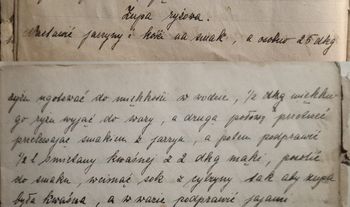 Zupa ryżowa.
Nastawić jarzyny i kości na smak, a osobno 25 dkg
ryżu ugotować do miękkości w wodzie, 1/2 dkg miękkie-
go ryżu wyjąć do wazy, a drugą połowę przetrzeć
przelewając smakiem z jarzyn, a potem podprawić
1/2 l śmietany kwaśnej z 2 dkg mąki, posolić
do smaku, wcisnąć sok z cytryny tak aby zupa
była kwaśna, a w wazie podprawić jajami